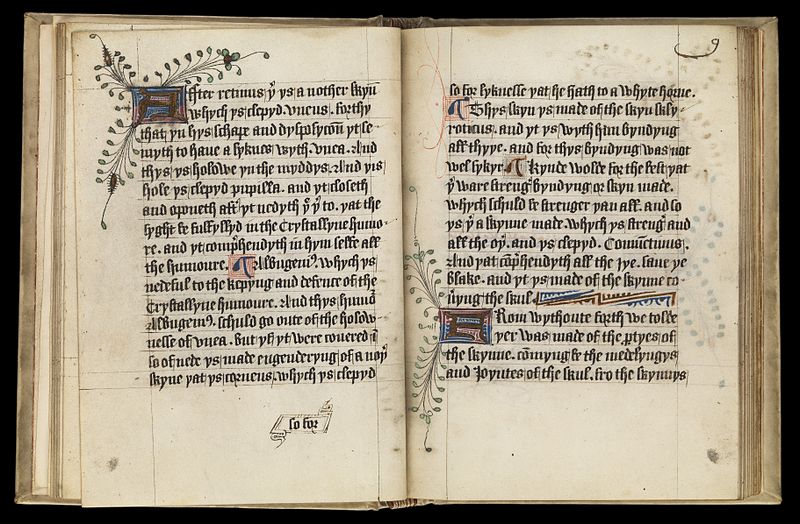 After retinus yͤ ys a nother skyn
whych ys clepyd. vneus. forthy
that yn hys schape and dysposycoun yt se-
myth to haue a lyknes wyth. vuea. And
thys ys holowe yn the myddys. And yis
hole ys clepyd pupilla. and yt closeth
and opneth aftʳ yt nedyth yͤ yͤ to. yat the
lyght be fulfyllyd in the Crystallyne humo-
re. and yt comprehendyth in hym selfe all
the humoure. Albugeniꝰ. whych ys
nedeful to the kepyng and defence of the
Crystallyne humoure. And thys humor
Albugeniꝰ. schuld go oute of the holow-
nesse of vuea. But yf yt were couered
so of nede ys made engenderyng of a noyͬ
skyne yat ys corneus. whych ys clepyd
so for
9
so for lyknesse yat he hath to a whyte horne.
Thys skyn ys made of the skyn skly-
roticus. and yt ys wyth hym byndyng
all thyge. and for thys byndyng was not
wel syker. Kynde wolde for the best yat
yͤ ware strengͬ byndyng or skyn made.
whych schuld be strenger yan all. and so
ys yͤ a skynne made. whych ys strengͬ and
all the oyͬ. and ys clepyd. Coniunctiuus.
And yat comprehendyth all the iye. saue ye
blake. and yt ys made of the skynne co-
ueryng the skul.
From wythoute forth we tolde
yer was made of the ꝑtyes of
the skynne. comyng be the medelyngys
and Joyntes of the skul. fro the skynnys